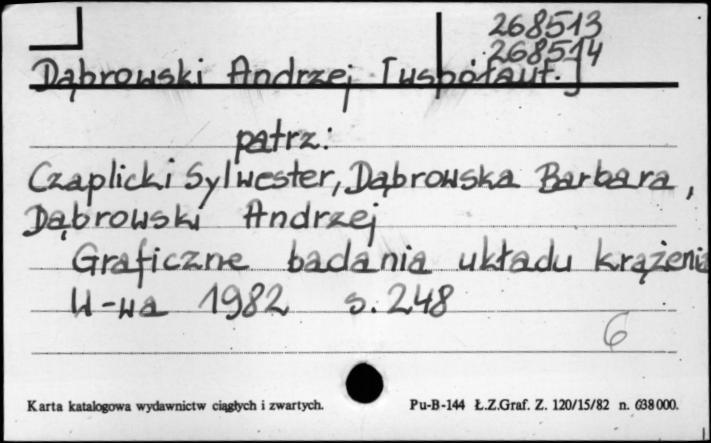 268513
268514
Dąbrowski Andrzej [współaut.]
patrz:
Czaplicki Sylwester, Dąbrowska Barbara,
Dąbrowski Andrzej
Graficzne badania układu krążenia
W-wa 1982 s. 248
6
Karta katalogowa wydawnictw ciągłych i zwartych. Pu-B-144 Ł.Z.Graf. Z. 120/15/82 n. 638000.